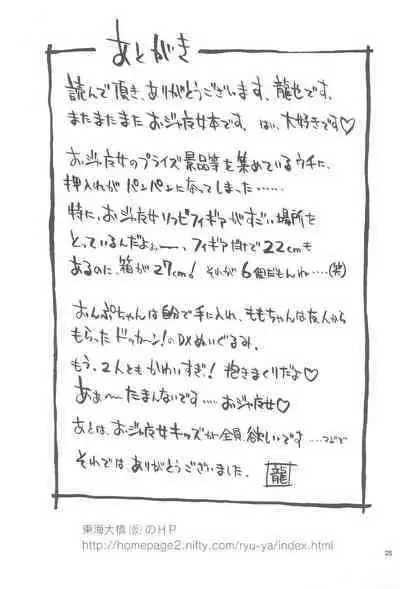 あとがき
読んで頂き、ありがとうございます、龍也です。
またまたまた おジャ魔女本です。はい、大好きです♡
おジャ魔女のプライズ景品等を集めているウチに、
押入れがパンパンになってしまった……
特に、おジャ魔女ソフビフィギアがすごい場所を
とっているんだよぉー、フィギア自体で22cmも
あるのに、箱が27cm! それが6個だもんね‥‥(笑)
おんぷちゃんは自分で手に入れ、ももちゃんは友人から
もらったドッカ〜ン!のDXぬいぐるみ。
もう、2人ともかわいすぎ! 抱きまくりだよ♡
あぁ〜たまんないです‥‥おジャ魔女♡
あとは、おジャ魔女キッズが全員欲しいです
それでは ありがとうございました。 龍
東海大橋(仮)のHP
http://homepage2.nifty.com/ryu-ya/index.html
25